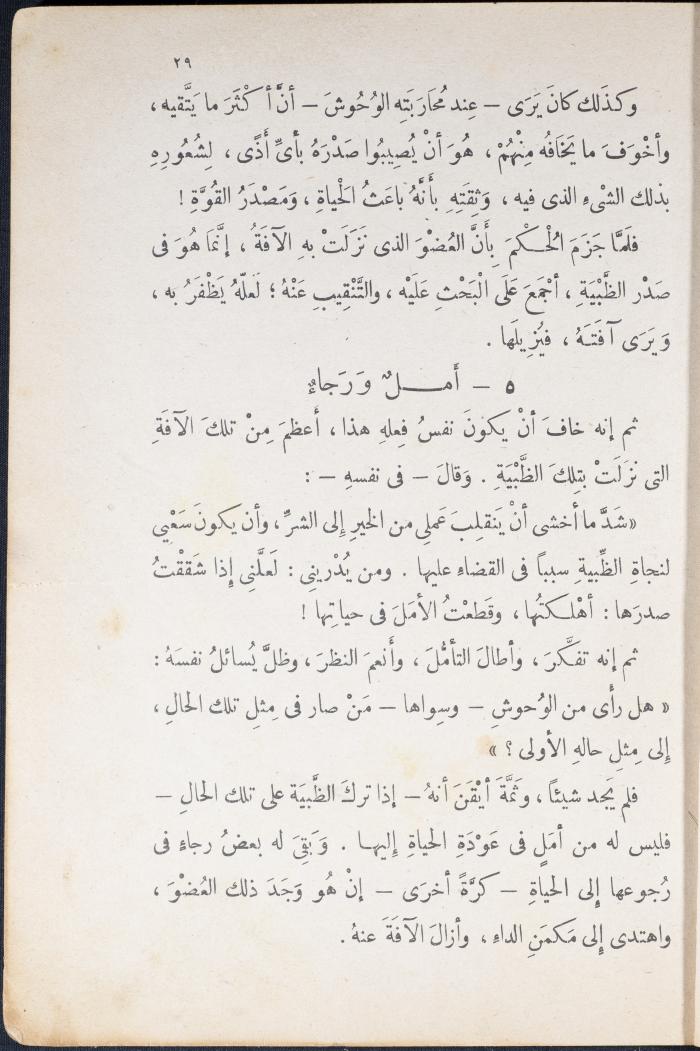 ٢٩
وكذَلك كانَ يَرَى — عِند مُحَارَبَتِه الوُحُوشَ — أنَّ أكْثَرَ ما يَتَّقيه ،
وأخْوَفَ ما يَخَافُه مِنْهُمْ ، هُوَ أنْ يُصِيبُوا صَدْرَهُ بأىِّ أذًى ، لِشُعُورِهِ
بذلك الشىْءِ الذى فيه ، وَثِقَتِهِ بأنَّهُ باعَثُ الْحياةِ ، وَمَصْدَرُ القُوَّةِ !
فلَمَّا جَزَمَ الْحُكْمَ بِأَنَّ العُضْوَ الذى نَزَلَتْ بهِ الآفَةُ ، إنَّمَا هُوَ فى
صَدْر الظَّبْيَةِ ، أجْمَعَ عَلَى الْبَحْثِ عَلَيْه ، والتَّنْقِيبِ عَنْهُ ؛ لَعلَّهُ يَظْفَرُ به ،
وَيَرَى آفَتَهُ ، فيُزِيلَها .
٥ — أَمَلٌ وَرَجاءٌ
ثم إنه خافَ أنْ يكونَ نفسُ فِعلِهِ هذا ، أَعظمَ مِنْ تلكَ الآفَةِ
التى نزَلَتْ بتِلكَ الظَّبْيَةِ . وَقالَ — فى نفسِهِ — :
«شَدَّ ما أخشى أنْ يَنقلِبَ عَملى من الخيرِ إلى الشرِّ ، وأن يكونَ سَعْيِي
لنجاةِ الظِّبيةِ سبباً فى القضاءِ عليها . ومن يُدْرينِى : لَعلَّنِى إذا شَقَقْتُ
صدرَها : أهْلكتُها ، وقَطعْتُ الأمَلَ فى حياتِها !
ثم إنه تفَكَّرَ ، وأطالَ التأمُّلَ ، وأَنعمَ النظرَ ، وظلَّ يُسائلُ نفسَهُ :
« هل رأَى من الوُحوشِ — وسِواها — مَنْ صار فى مِثلِ تلك الحالِ ،
إلى مِثلِ حالهِ الأولى ؟ »
فلم يَجد شيئاً ، وثَمَّةَ أيْقَنَ أنهُ — إذا تركَ الظَّبيَة على تلك الحالِ —
فليس له من أمَلٍ فى عَوْدَةِ الحياةِ إليها . وَبَقِىَ له بعضُ رجاءٍ فى
رُجوعها إلى الحياةِ — كرَّةً أخرَى — إنْ هُو وَجَدَ ذلك العُضوَ ،
واهتدى إلى مَكمَنِ الداءِ ، وأزالَ الآفَةَ عنهُ .